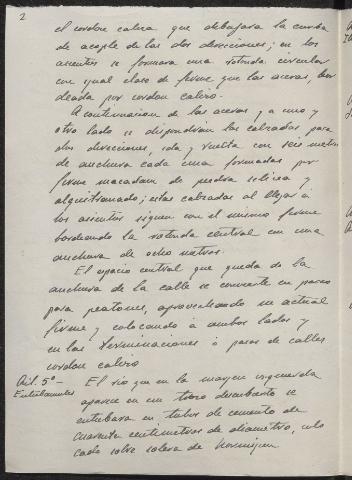 2
el cordon calizo que debajara la curba
de acople de las dos direcciones; en los
asientos se formara una rotonda circular
con igual clase de firme que las aceras, bor
deada por cordon calizo.
A continuacion de las aceras y a uno y
otro lado se dispondran las calzadas para
dos direcciones, ida y vuelta con seis metros
de anchura cada una formadas por
firme macadam de piedra silicea y
alquitranado; estas calzadas al llegar á
los asientos siguen con el mismo firme
bordeando la rotonda central con una
anchura de ocho metros.
El espacio central que queda de la
anchura de la calle se convierte en paseo
para peatones, aprovechando su actual
firme y colocando á ambos lados y
en las terminaciones o pasos de calles
cordon calizo
Art. 5º —
Entubamientos
El rio que en la margen izquierda
aparece en un trozo descubierto se
entubara en tubos de cemento de
cuarenta centimetros de diametro, colo
cado sobre solera de hormigon